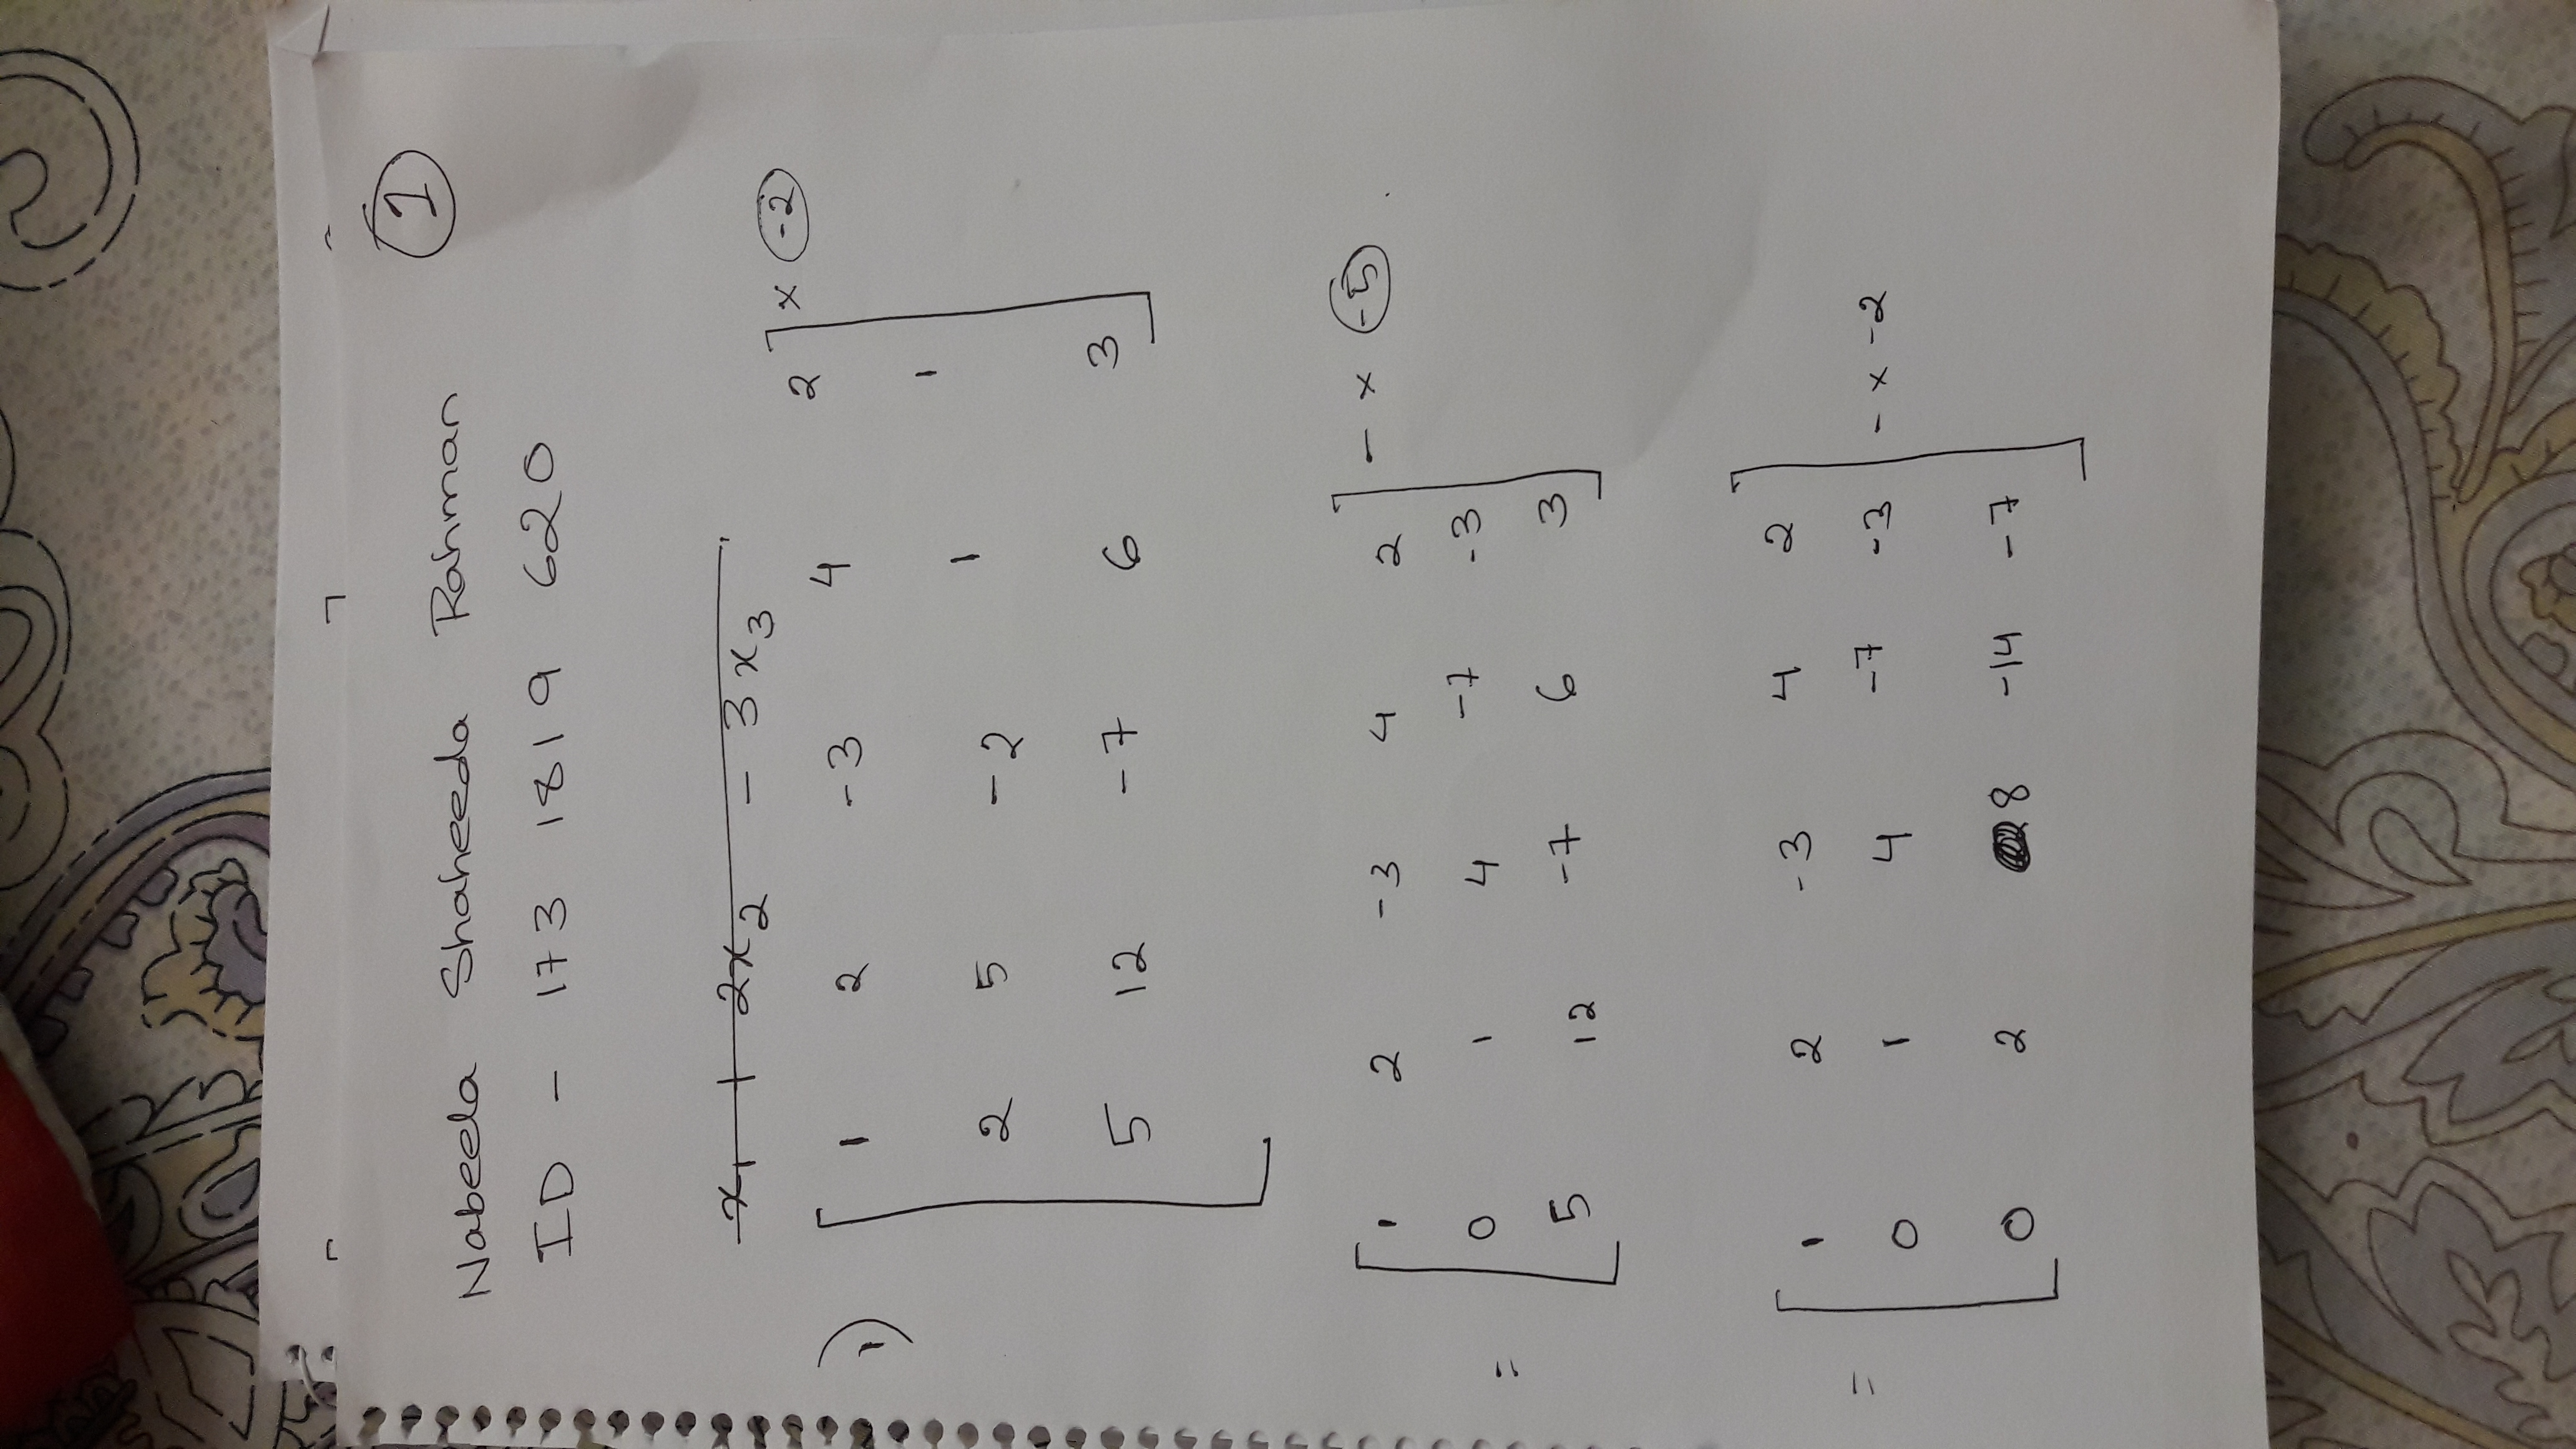 1
Nabeela Shaheeda Rahman
ID - 173 1819 620
x1 + 2x2 - 3x3
1) [ 1 2 -3 4 2 ] x -2
2 5 -2 1 1
5 12 -7 6 3
= [ 1 2 -3 4 2 ] - x -5
0 1 4 -7 -3
5 12 -7 6 3
= [ 1 2 -3 4 2
0 1 4 -7 -3 ] - x -2
0 2 8 -14 -7